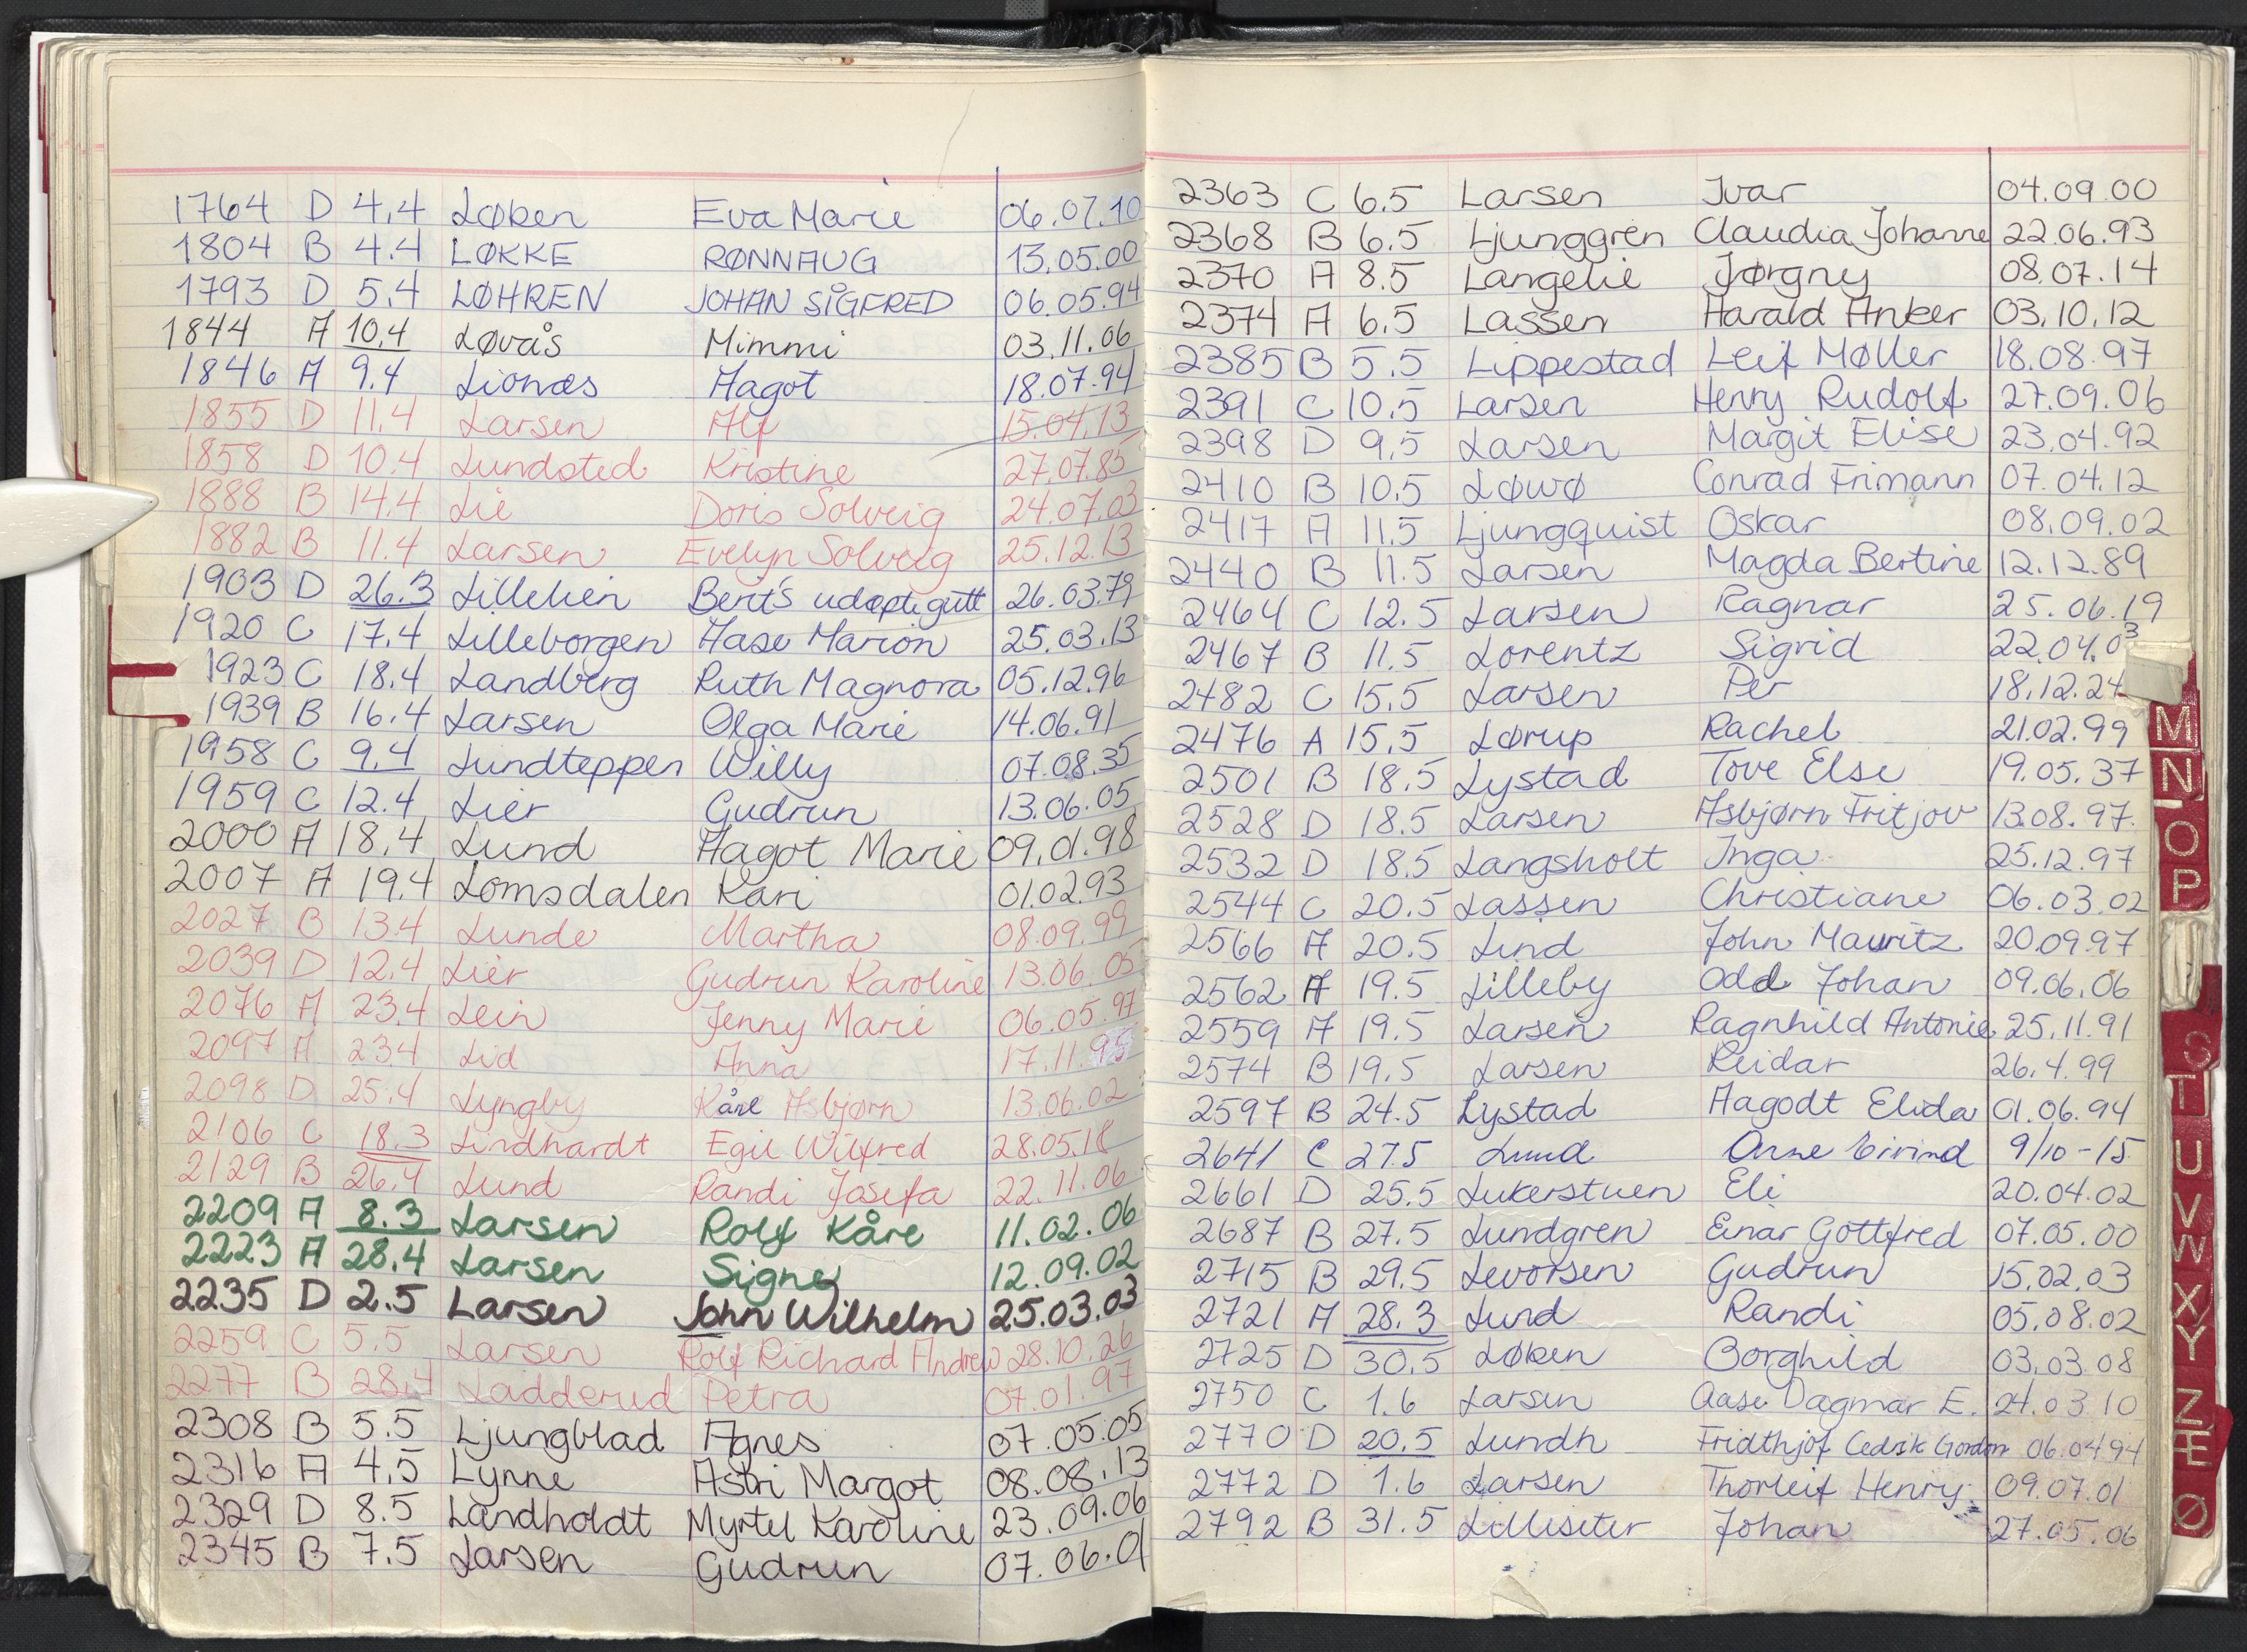 1764 D 4.4 Løken Eva Marie 06.07.10
1804 B 4.4 LØKKE RØNNAUG 13.05.00
1793 D 5.4 LØHREN JOHAN SIGFRED 06.05.94
1844 A 10.4 Løvås Mimmi 03.11.06
1846 A 9.4 Lionæs Aagot 18.07.94
1855 D 11.4 Larsen Alf 15.04.13
1858 D 10.4 Lundsted Kristine 27.07.85
1888 B 14.4 Lie Doris Solveig 24.07.03
1882 B 11.4 Larsen Evelyn Solveig 25.12.13
1903 D 26.3 Lillelien Berit's udøpte gutt 26.03.79
1920 C 17.4 Lilleborgen Aase Marion 25.03.13
1923 C 18.4 Landberg Ruth Magnora 05.12.96
1939 B 16.4 Larsen Olga Marie 14.06.91
1958 C 9.4 Lundteppen Willy 07.08.35
1959 C 12.4 Lier Gudrun 13.06.05
2000 A 18.4 Lund Aagot Marie 09.01.98
2007 A 19.4 Lomsdalen Kari 01.02.93
2027 B 13.4 Lunde Martha 08.09.99
2039 D 12.4 Lier Gudrun Karoline 13.06.05
2076 A 23.4 Lein Jenny Marie 06.05.97
2097 A 23.4 Lid Anna 17.11.95
2098 D 25.4 Lyngby Kåre Asbjørn 13.06.02
2106 C 18.3 Lindhardt Egil Wilfred 28.05.18
2129 B 26.4 Lund Randi Josefa 22.11.06
2209 A 8.3 Larsen Rolf Kåre 11.02.06
2223 A 28.4 Larsen Signe 12.09.02
2235 D 2.5 Larsen John Wilhelm 25.03.03
2259 C 5.5 Larsen Rolf Richard Andrew 28.10.26
2277 B 28.4 Ladderud Petra 07.01.97
2308 B 5.5 Ljungblad Agnes 07.05.05
2316 A 4.5 Lynne Astri Margot 08.08.13
2329 D 8.5 Landholdt Myrtel Karoline 23.09.06
2345 B 7.5 Larsen Gudrun 07.06.01
2363 C 6.5 Larsen Ivar 04.09.00
2368 B 6.5 Ljunggren Claudia Johanne 22.06.93
2370 A 8.5 Langelie Jørgny 08.07.14
2374 A 6.5 Lassen Harald Anker 03.10.12
2385 B 5.5 Lippestad Leif Møller 18.08.97
2391 C 10.5 Larsen Henry Rudolf 27.09.06
2398 D 9.5 Larsen Margit Elise 23.04.92
2410 B 10.5 Løwø Conrad Frimann 07.04.12
2417 A 11.5 Ljungquist Oskar 08.09.02
2440 B 11.5 Larsen Magda Bertine 12.12.89
2464 C 12.5 Larsen Ragnar 25.06.19
2467 B 11.5 Lorentz Sigrid 22.04.03
2482 C 15.5 Larsen Per 18.12.24
2476 A 15.5 Lørup Rachel 21.02.99
2501 B 18.5 Lystad Tove Else 19.05.37
2528 D 18.5 Larsen Asbjørn Fritjov 13.08.97
2532 D 18.5 Langsholt Inga 25.12.97
2544 C 20.5 Lassen Christiane 06.03.02
2566 A 20.5 Lind John Mauritz 20.09.97
2562 A 19.5 Lilleby Odd Johan 09.06.06
2559 A 19.5 Larsen Ragnhild Antonie 25.11.91
2574 B 19.5 Larsen Reidar 26.4.99
2597 B 24.5 Lystad Aagodt Elida 01.06.94
2641 C 27.5 Lund Arne Eivind 9/10-15
2661 D 25.5 Lukerstuen Eli 20.04.02
2687 B 27.5 Lundgren Einar Gottfred 07.05.00
2715 B 29.5 Levorsen Gudrun 15.02.03
2721 A 28.3 Lund Randi 05.08.02
2725 D 30.5 Løken Borghild 03.03.08
2750 C 1.6 Larsen Aase Dagmar E. 24.03.10
2770 D 20.5 Lundh Fridthjof Cedrik Gordon 06.04.94
2772 D 1.6 Larsen Thorleif Henry 09.07.01
2792 B 31.5 Lilliseter Johan 27.05.06
M
N
O
P
S
T
U
V
W
X
Y
Z
Æ
Ø